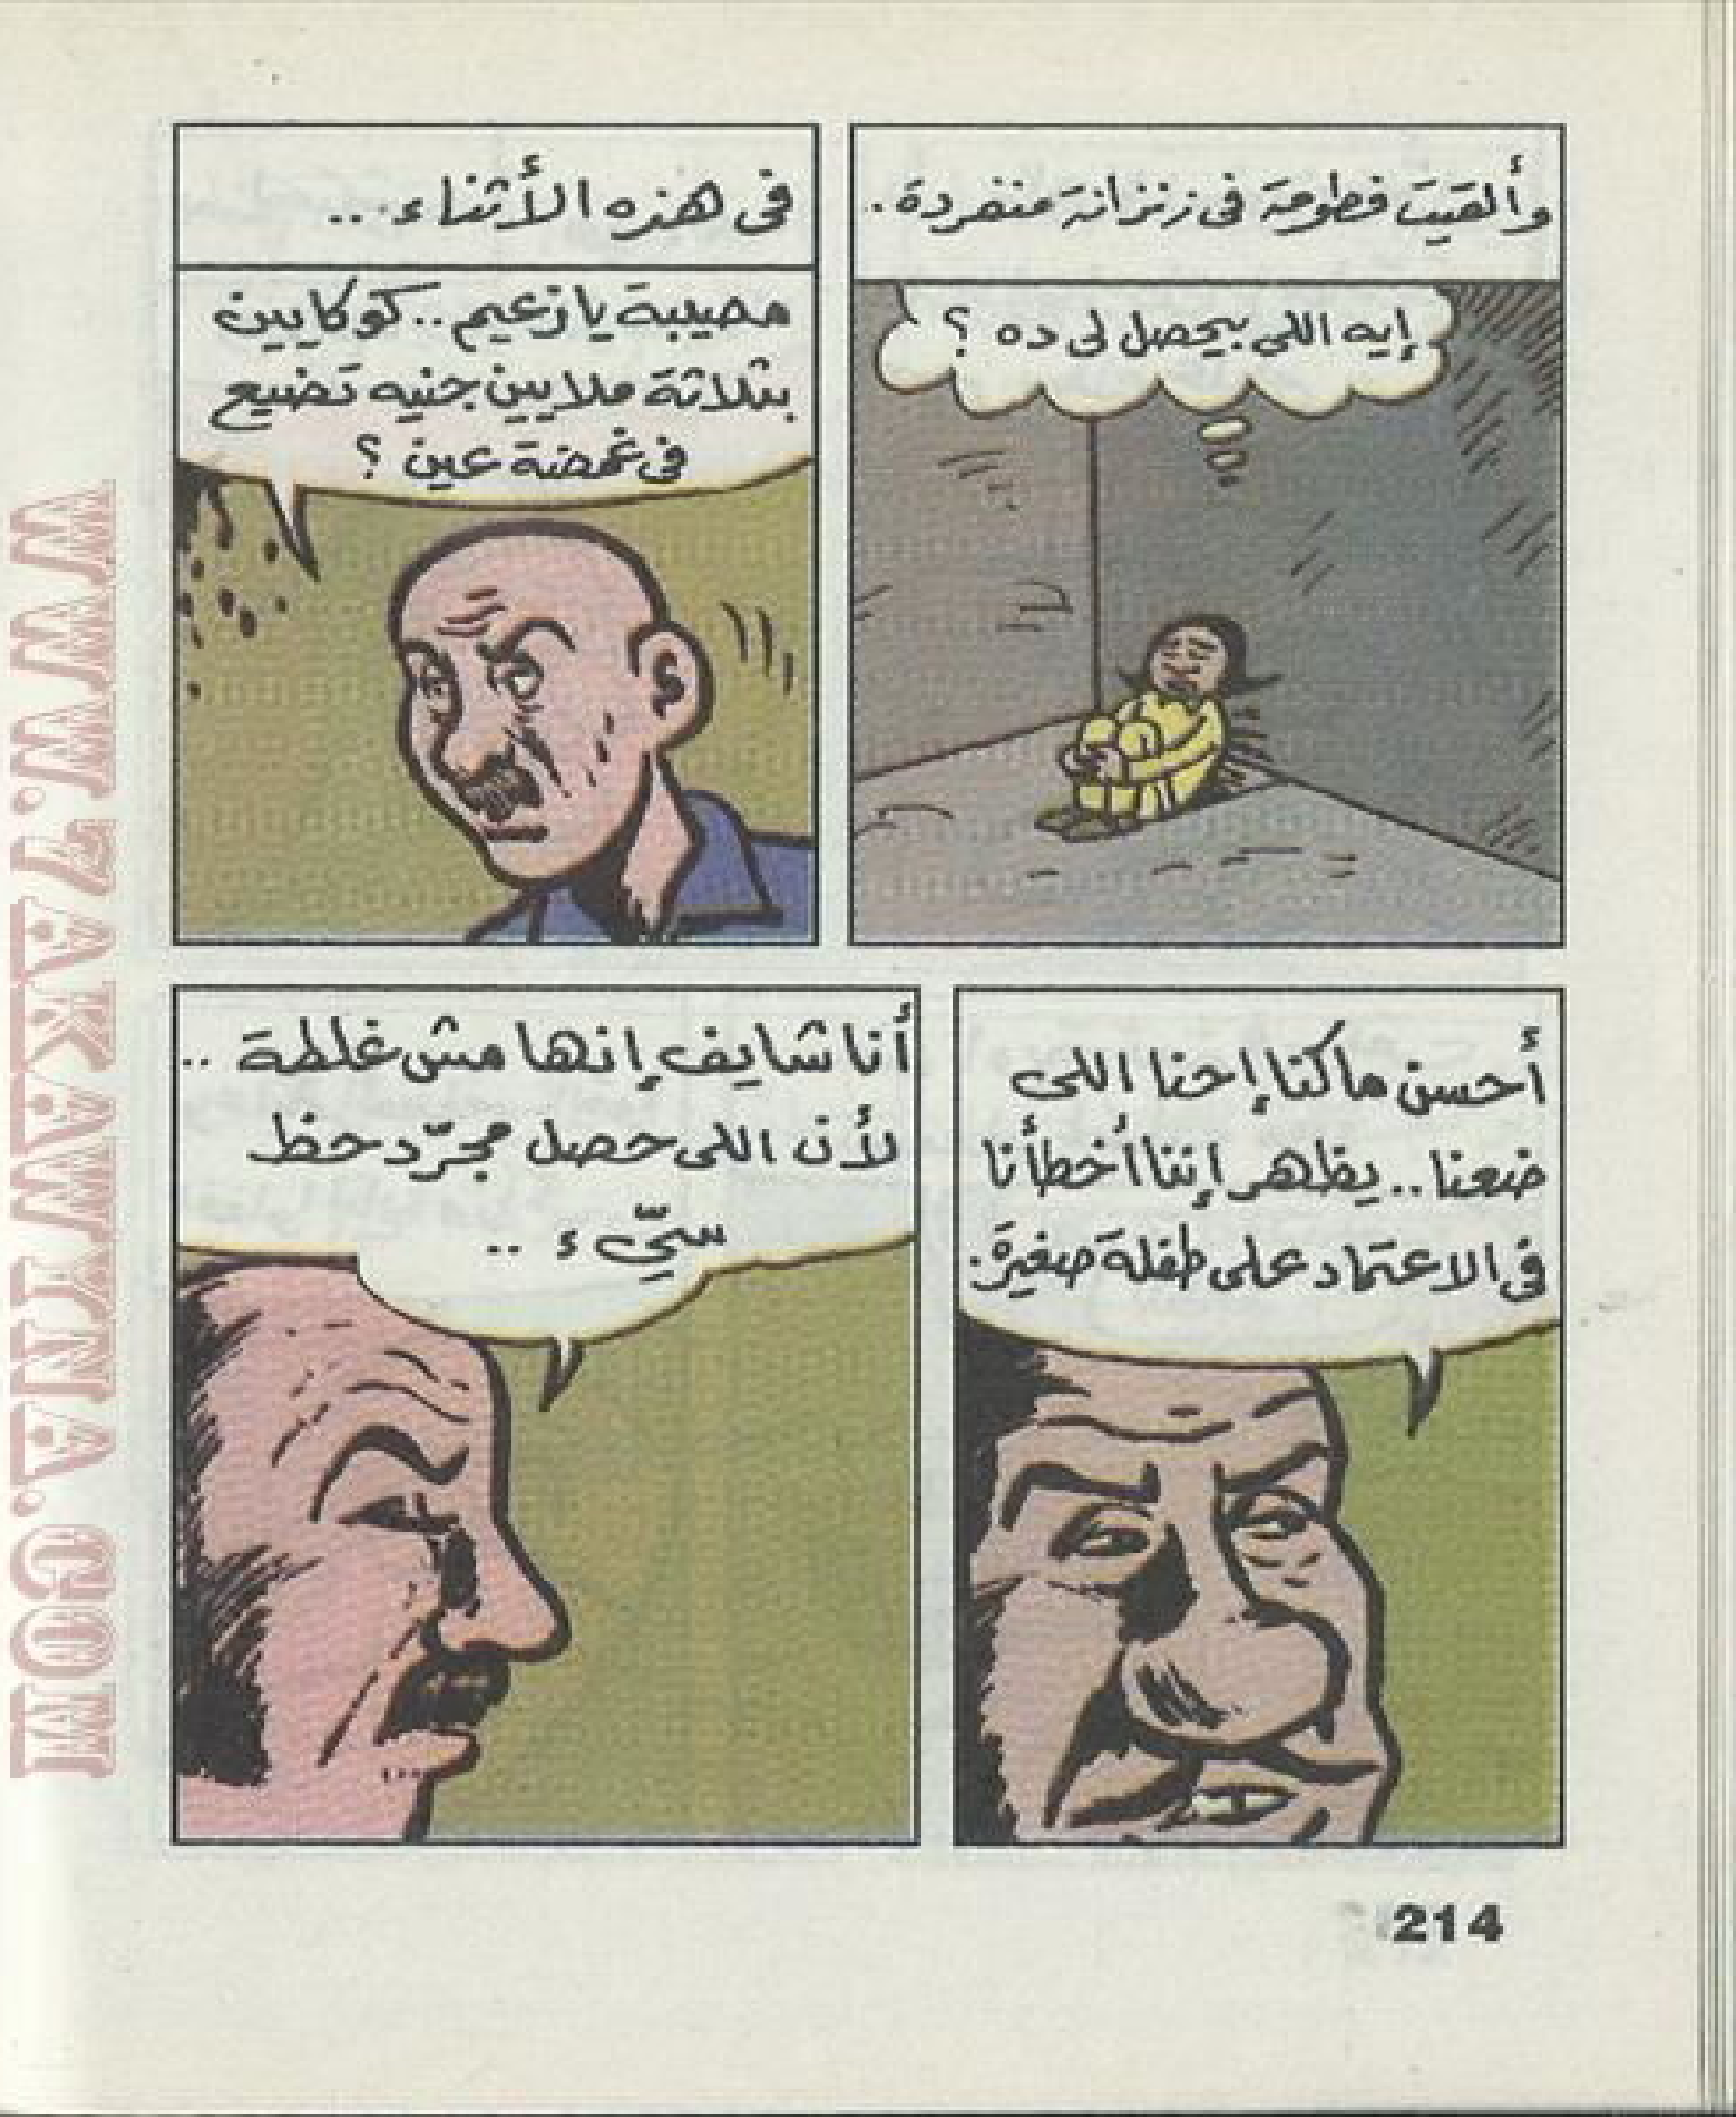 وألقيت فطومة فى زنزانة منفردة..
إيه اللى بيحصل لى ده ؟
فى هذه الأثناء...
مصيبة يا زعيم.. كوكايين
بثلاثة ملايين جنيه تضيع
فى غمضة عين ؟
أحسن ما كنا إحنا اللى
ضعنا.. يظهر إننا أخطأنا
فى الاعتماد على طفلة صغيرة.
أنا شايف إنها مش غلطة ..
لأن اللى حصل مجرّد حظ
سيّئ ..
214
WWW.7AKAWINNA.COM